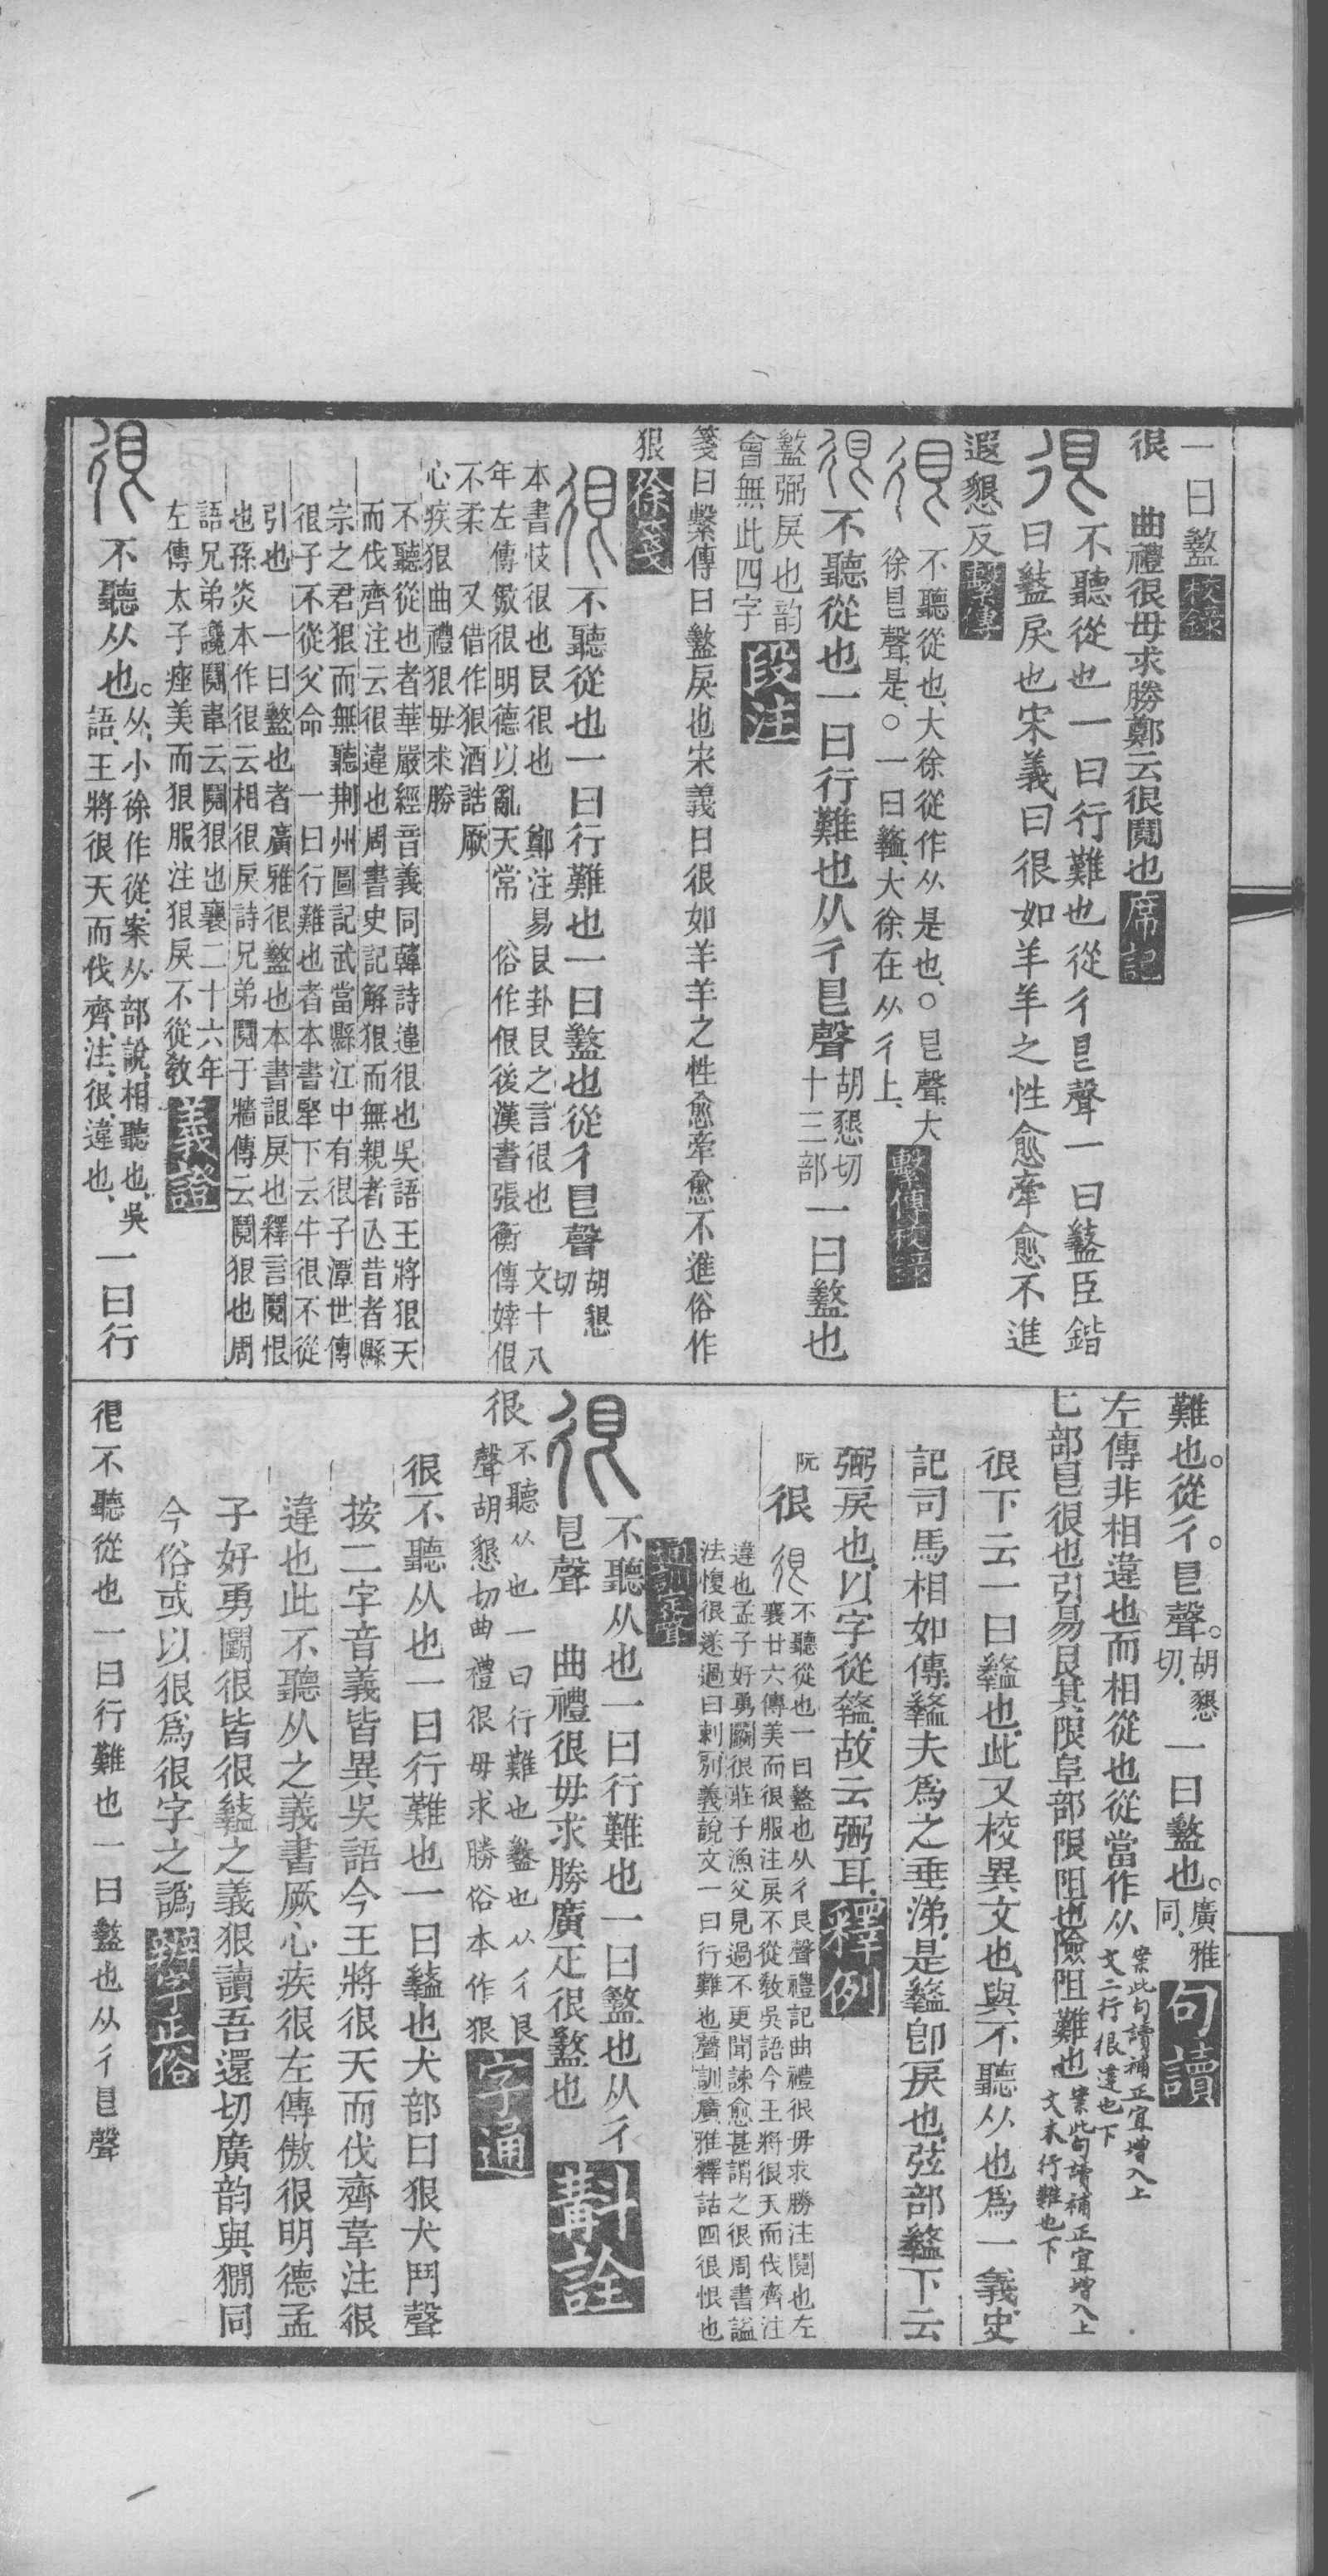 一曰盭校録
很　曲禮很毋求勝鄭云很鬩也席記
不聽從也一曰行難也從彳皀聲一曰盭臣鍇
曰盭戾也宋義曰很如羊羊之性愈牽愈不進
遐懇反繫傳
不聽從也、大徐從作从是也、○皀聲、大
徐皀聲、是、○一曰盭、大徐在从彳上、繫傳校録
不聽從也一曰行難也从彳皀聲胡懇切十三部一曰盭也
盭弼戾也韵
會無此四字段注
箋曰繫傳曰盭戾也宋義曰很如羊羊之性愈牽愈不進俗作
狠徐箋
不聽從也一曰行難也一曰盭也從彳皀聲胡懇切
本書忮很也艮很也　鄭注易艮卦艮之言很也　文十八
年左傳傲很明德以亂天常　俗作佷後漢書張衡傳婞佷
不柔　又借作狠酒誥厥
心疾狠曲禮狠毋求勝
不聽從也者華嚴經音義同韓詩違很也吳語王將狠天
而伐齊注云很違也周書史記解狠而無親者亾昔者縣
宗之君狠而無聽荆州圖記武當縣江中有很子潭世傳
很子不從父命　一曰行難也者本書堅下云牛很不從
引也　一曰盭也者廣雅很盭也本書詪戾也釋言鬩恨
也孫炎本作很云相很戾詩兄弟鬩于牆傳云鬩狠也周
語兄弟讒鬩韋云鬩狠也襄二十六年
左傳太子痤美而狠服注狠戾不從教義證
不聽从也。从、小徐作從、案从部說、相聽也、吳
語、王將很天而伐齊、注、很、違也、一曰行
難也。從彳。皀聲。胡懇切、一曰盭也。廣雅同、句讀
左傳非相違也而相從也從當作从案此句讀補正宜增入上文二行很違也下
匕部皀很也引易艮其限阜部限阻也險阻難也案此句讀補正宜增入上文末行難也下
很下云一曰盭也、此又校異文也、與不聽从也爲一義、史
記司馬相如傳、盭夫爲之垂涕、是盭卽戾也、弦部盭下云
弼戾也、以字從盭、故云弼耳、釋例
阮
很　不聽從也一曰盭也从彳艮聲禮記曲禮很毋求勝注鬩也左
襄廿六傳美而很服注戾不從教吳語今王將很天而伐齊注
違也孟子好勇鬭很莊子漁父見過不更聞諫愈甚謂之很周書謚
法愎很遂過曰剌別義說文一曰行難也聲訓廣雅釋詁四很恨也
通訓定聲
不聽从也一曰行難也一曰盭也从彳
皀聲　曲禮很毋求勝廣疋很盭也斠詮
很　不聽从也一曰行難也盭也从彳艮
聲胡懇切曲禮很毋求勝俗本作狠字通
很不聽从也一曰行難也一曰盭也犬部曰狠犬鬥聲
按二字音義皆異吳語今王將很天而伐齊韋注很
違也此不聽从之義書厥心疾很左傳傲很明德孟
子好勇鬭很皆很盭之義狠讀吾還切廣韵與㺊同
今俗或以狠爲很字之譌證字正俗
很不聽從也一曰行難也一曰盭也从彳皀聲